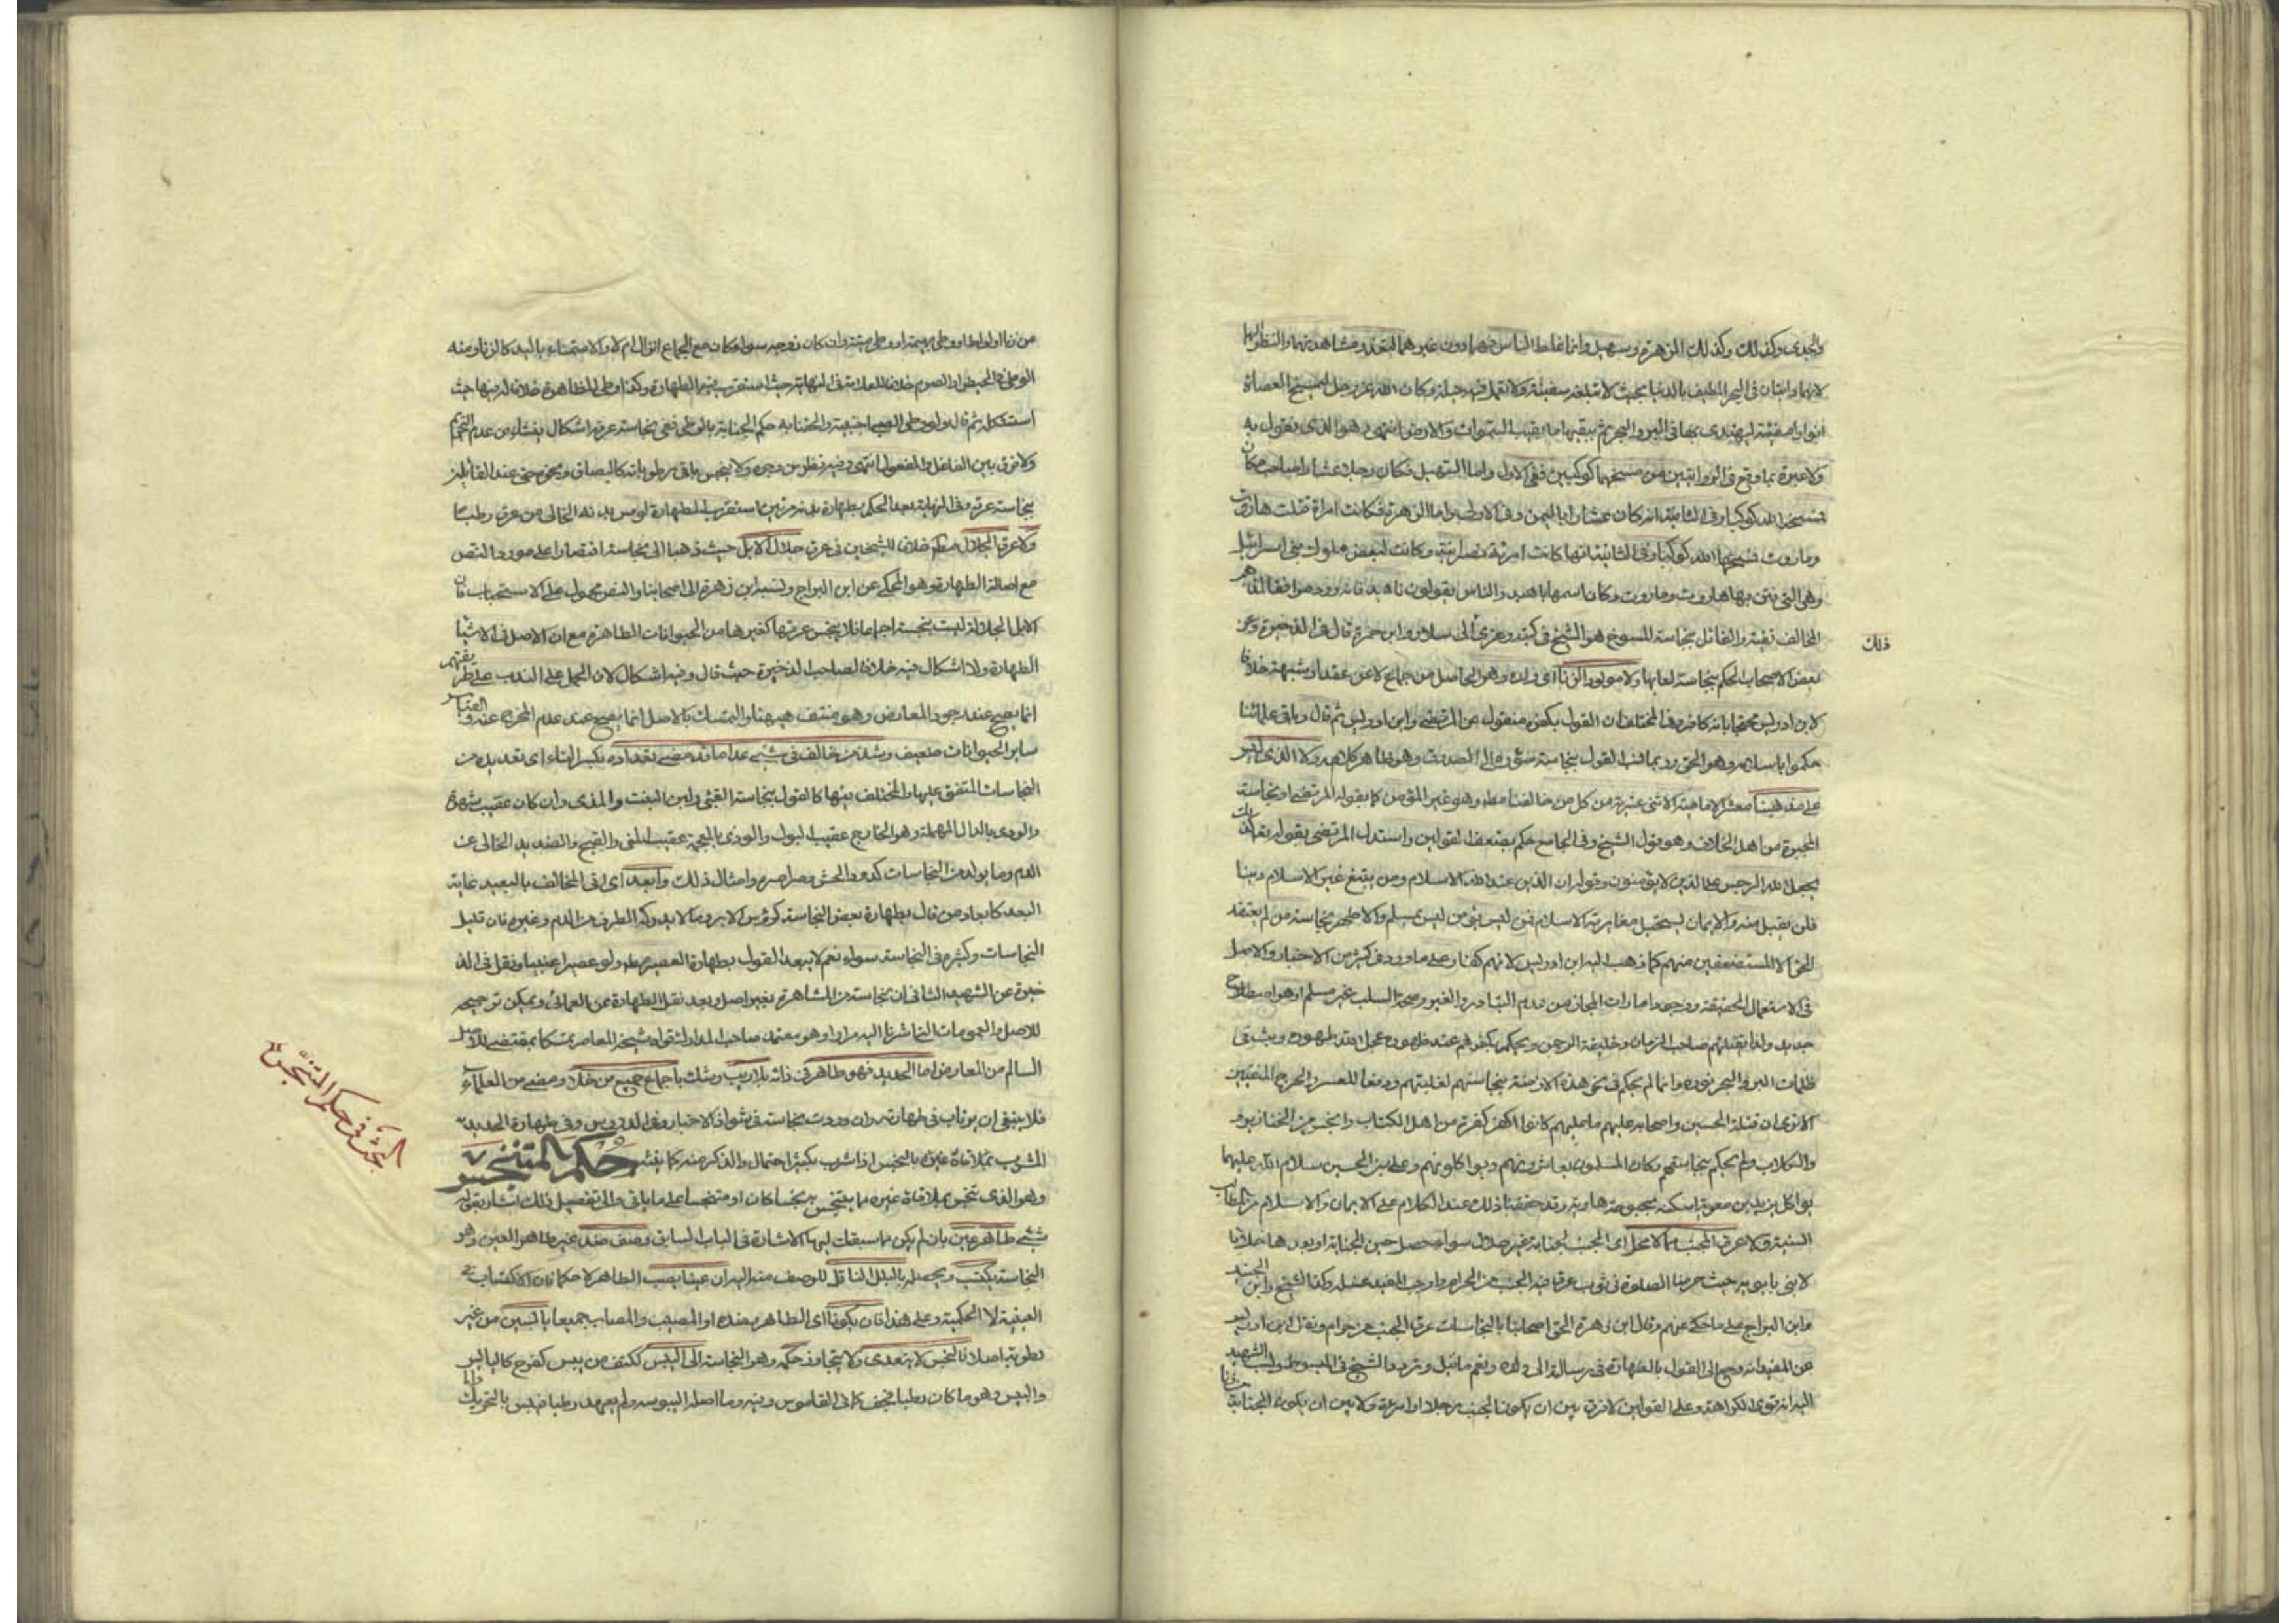 والجدى وكذلك وكذلك الزهرة وسهيل وانما غلط الناس فيهما دون غيرهما لبعدهم ومشاهدتهما والنظر اليها
لانهما دابتان فى البحر المطيف بالدنيا بحيث لا تبلغه سفينة ولا تعمل فيه حيلة وما كان الله عز وجل ليمسخ العصاة
انوارا مضيئة ليهتدى بها فى البر والبحر ثم يبقيها ما بقيت السموات والارض انتهى وهو الذى نقول به
ولا عبرة بما وقع فى الروايتين من مسخهما كوكبين ففى الاول واما السهيل فكان رجلا عشارا صاحب مكان
فمسخه الله كوكبا وفى الثانية انه كان عشارا باليمن وفى الاولى واما الزهرة فكانت امراة فتنت هاروت
وماروت فمسخها الله كوكبا وفى الثانية انها كانت امرئة نصرانية وكانت لبعض ملوك بنى اسرائيل
وهى التى فتن بها هاروت وماروت وكان اسمها ناهيد والناس يقولون ناهيد فانه ورد موافقا لمذاهب
المخالف تقية والقائل بنجاسة المسوخ هو الشيخ فى كتبه وعزى الى سلار وابن حمزة قال فى الذخيرة وعن
ذلك
بعض الاصحاب الحكم بنجاسة لعابها ولا مولود الزنا اى ولده وهو الحاصل من جماع لا عن عقد او شبهة خلافا
لابن ادريس محتجا بانه كافر وفى المختلف ان القول بكفره منقول عن المرتضى وابن ادريس ثم قال وباقى علمائنا
حكموا باسلامه وهو الحق وربما نسب القول بنجاسة سؤره الى الصدوق وهو ظاهر كلامه ولا الذى ليس
على مذهبنا معشر الامامية الاثنى عشرية من كل من خالفنا مط وهو غير المؤمن كما يقوله المرتضى او نجاسة
المجبرة من اهل الخلاف وهو قول الشيخ وفى الجامع حكم بضعف القولين واستدل المرتضى بقوله تعالى كذلك
يجعل الله الرجس على الذين لا يؤمنون وقوله ان الدين عند الله الاسلام ومن يبتغ غير الاسلام دينا
فلن يقبل منه والايمان يستحيل مغايرته الاسلام فمن ليس بمؤمن ليس بمسلم والاظهر نجاسة من لم يعتقد
الحق الا المستضعفين منهم كما ذهب اليه ابن ادريس لانهم كفار على ما ورد فى كثير من الاخبار والاصل
فى الاستعمال الحقيقة ووجود امارات المجاز من عدم التبادر والغير وصحة السلب غير مسلم او هو اصطلاح
جديد ولذا يقتلهم صاحب الزمان وخليفة الرحمن ويحكم بكفرهم عند ظهوره عجل الله ظهوره ويشرق
ظلمات البر والبحر بنوره وانما لم يحكم فى نحو هذه الازمنة بنجاستهم لغلبتهم ودفعا للعسر والحرج المنفيين
الا ترى ان قتلة الحسين واصحابه عليهم ما عليهم كانوا اكفر كفرة من اهل الكتاب وانجس من الخنازير
والكلاب ولم يحكم بنجاستهم وكان المسلمون يعاشرونهم ويواكلونهم وعلى بن الحسين سلام الله عليهما
يواكل يزيد بن معوية اسكنه بحبوحة هاوية وقد حققنا ذلك عند الكلام على الايمان والاسلام من المطالب
السنية ولا عرق المجنب مما لا محل اى المجنب لجنابة غير حلال سواء حصل حين الجنابة او بعدها خلافا
لابنى بابويه حيث حرما الصلوة فى ثوب عرق فيه الجنب من الحرام واوجب المفيد غسله وكذا الشيخ وابن الجنيد
وابن البراج على ما حكى عنهم وقال ابن زهرة الحق اصحابنا بالنجاسات عرق الجنب من حرام ونقل ابن ادريس
عن المفيد انه رجع الى القول بالطهارة فى رسالته الى ولده ونعم ما قيل وتردد الشيخ فى المبسوط ونسب الشهيد
اليه انه قوى الكراهة وعلى القولين لا فرق بين ان يكون الجنب رجلا او امرءة ولا بين ان يكون الجنابة
من زنا او لواط او وطى بهيمة او وطى ميتة وان كان زوجه سواء كان مع الجماع انزال ام لا والاستمناء باليد كالزنا ومنه
الوطى فى الحيض او الصوم خلافا للعلامة فى النهاية حيث استقرب فيه الطهارة وكذا وطى المظاهرة خلافا له فيها حيث
استشكله ثم قال ولو وطى الصبى اجنبية والحقنا به حكم الجنابة بالوطى ففى نجاسة عرقه اشكال ينشاء من عدم التحريم
ولا فرق بين الفاعل والمفعول انتهى وفيه نظر من وجوه ولا ينجس باقى رطوباته كالبصاق ونحوه حتى عند القائلين
بنجاسة عرقه وفى النهاية بعد الحكم بطهارة بدنه مرتين استقرب الطهارة لو مس بدنه الخالى من عرق رطبا
ولا عرق الجلال مط خلافا للشيخين فى عرق جلال الابل حيث ذهبا الى نجاسته اقتصارا على مورد النص
مع اصالة الطهارة وهو المحكى عن ابن البراج ونسبه ابن زهرة الى اصحابنا والنص محمول على الاستحباب فان
الابل الجلالة ليست بنجسة اجماعا فلا ينجس عرقها كغيرها من الحيوانات الطاهرة مع ان الاصل فى الاشيا
الطهارة ولا اشكال فيه خلافا لصاحب الذخيرة حيث قال وفيه اشكال لان الحمل على الندب على طريقتهم
انما يصح عند وجود المعارض وهو منتف هيهنا والتمسك بالاصل انما يصح عند عدم المخرج عنه والقياس
ساير الحيوانات ضعيف وشذ من خالف فى شىء عدا ما قد مضى تعداده بكسر التاء اى تعديده من
النجاسات المتفق عليها والمختلف فيها كالقول بنجاسة القىء ولبن البنت والمذى وان كان عقيب شهوة
والودى بالدال المهملة وهو الخارج عقيب البول والوذى بالمعجمة عقيب المنى والقيح والصديد الخالى عن
الدم وما يولد من النجاسات كدود الحش وصراصره وامثال ذلك وابعد اى اتى المخالف بالبعيد غاية
البعد كابعاد من قال بطهارة بعض النجاسة كرؤس الابر وما لا يدركه الطرف من الدم وغيره فان قليل
النجاسات وكثيره فى النجاسة سواء نعم لا يبعد القول بطهارة العصير مط ولو عصيرا عنبيا ونقل فى الذ
خيرة عن الشهيد الثانى ان نجاسته من المشاهرة بغير اصل وبعد نقل الطهارة عن العمانى ويمكن ترجيحه
للاصل والعمومات التى اشرنا اليه مرارا وهو معتمد صاحب المدارك وقواه شيخنا المعاصر تمسكا بمقتضى الاصل
السالم من المعارض اما الحديد فهو طاهر فى ذاته بلا ريب وشك باجماع جميع من خلا ومضى من العلماء
فلا ينبغى ان يرتاب فى طهارته وان وردت نجاسته فى شواذ الاخبار وفى الدروس وفى طهارة الحديد
المشرب بملاقاة عينه بالنجس اذا شرب بكثير احتمال والذكر منه كما يفسر حكم المتنجس
وهو الذى تنجس بملاقاة غيره مما ينجس به نجسا كان او متنجسا على ما ياتى والى تفصيل ذلك اشار بقوله
شىء طاهر عين بان لم يكن مما سبقت اليها الاشارة فى الباب السابق وصف ضد غير طاهر العين وهو
النجاسة يكتسب ويحصله بالبلل الناقل للوصف منه اليه ان عينا يصب الطاهر لا حكما فان الاكتساب فى
العينية لا الحكمية وعلى هذا فان يكونا اى الطاهر وضده او المصيب والمصاب جميعا يابسين من غير
رطوبة اصلا فالنجس لا يتعدى ولا يتجاوز حكمه وهو النجاسة الى اليبس ككتف من يبس كفرح كاليابس
واليبس وهو ما كان رطبا فجف كما فى القاموس وفيه وما اصله اليبوسة ولم يعهد رطبا فيبس بالتحريك واما
بحث فى حكم المتنجس